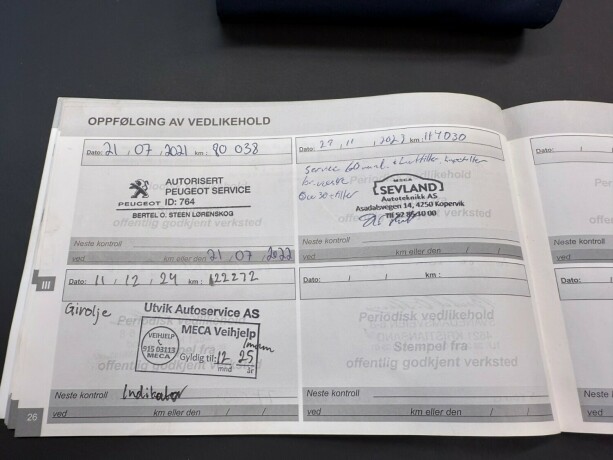 OPPFØLGING AV VEDLIKEHOLD
Dato: 21 , 07 , 2021 km : 80 038
AUTORISERT
PEUGEOT SERVICE
PEUGEOT ID: 764
BERTEL O. STEEN LØRENSKOG
offentlig godkjent verksted
Neste kontroll
ved km eller den 21 , 07 , 2022
Dato: 27 , 11 , 2023 km : 117030
Service
MECA
SEVLAND
Autoteknikk AS
Asadalsvegen 14, 4250 Kopervik
Tlf 52 85 10 00
offentlig godkjent verksted
Neste kontroll
ved km eller den / /
III
Dato: 11 , 12 , 24 km : 122272
Girolje
Utvik Autoservice AS
MECA Veihjelp
VEIHJELP
915 03113
MECA
Gyldig til: 12 25
mnd år
Periodisk vedlikehold
Stempel fra
offentlig godkjent verksted
Neste kontroll Indikator
ved km eller den / /
Dato: / / km :
Periodisk vedlikehold
Stempel fra
offentlig godkjent verksted
Neste kontroll
ved km eller den / /
26
Dato:
Neste
ved
Dato:
Neste
ved